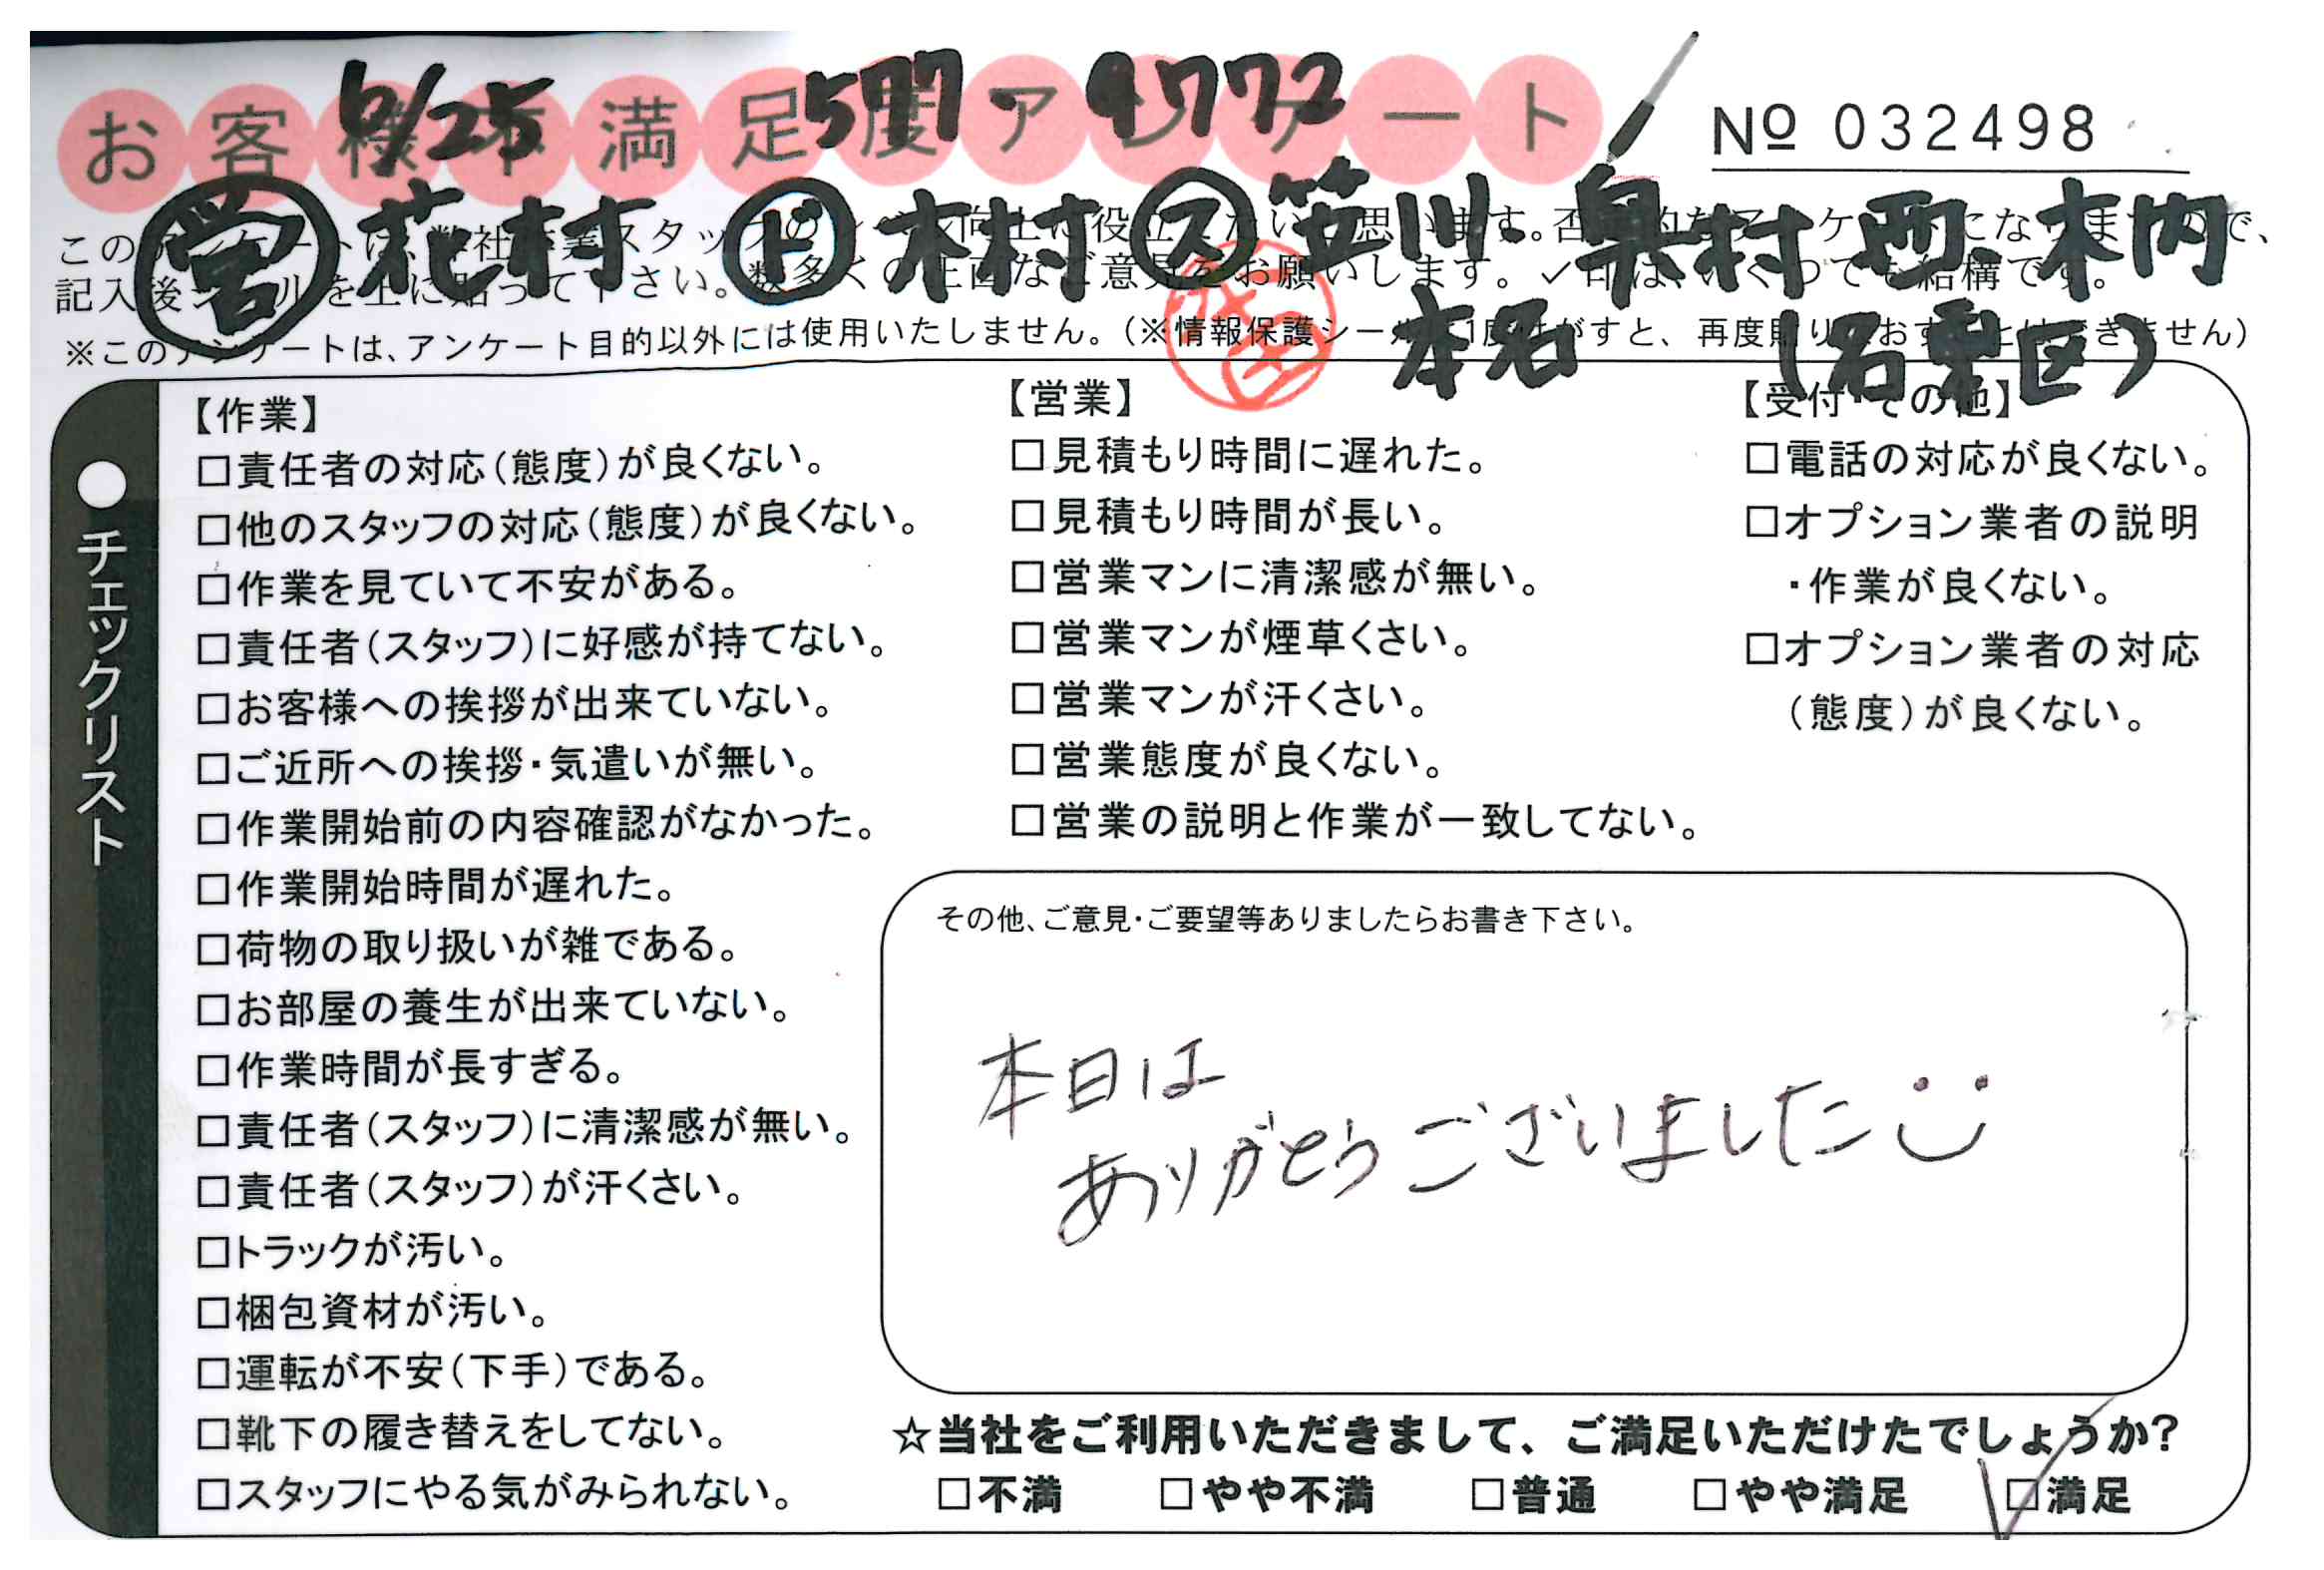 お客様不満足度アンケート
6/25 577-9772
№ 032498
営 花村 ド 木村 ス 笹川・奥村 西、木内
本名 (名東区)
記入後シールを上に貼って下さい。数多くの正直なご意見をお願いします。✓印は、いくつでも結構です。
※このアンケートは、アンケート目的以外には使用いたしません。(※情報保護シールは1度はがすと、再度貼りなおすことはできません)
●チェックリスト
【作業】
□責任者の対応(態度)が良くない。
□他のスタッフの対応(態度)が良くない。
□作業を見ていて不安がある。
□責任者(スタッフ)に好感が持てない。
□お客様への挨拶が出来ていない。
□ご近所への挨拶・気遣いが無い。
□作業開始前の内容確認がなかった。
□作業開始時間が遅れた。
□荷物の取り扱いが雑である。
□お部屋の養生が出来ていない。
□作業時間が長すぎる。
□責任者(スタッフ)に清潔感が無い。
□責任者(スタッフ)が汗くさい。
□トラックが汚い。
□梱包資材が汚い。
□運転が不安(下手)である。
□靴下の履き替えをしてない。
□スタッフにやる気がみられない。
【営業】
□見積もり時間に遅れた。
□見積もり時間が長い。
□営業マンに清潔感が無い。
□営業マンが煙草くさい。
□営業マンが汗くさい。
□営業態度が良くない。
□営業の説明と作業が一致してない。
【受付・その他】
□電話の対応が良くない。
□オプション業者の説明
・作業が良くない。
□オプション業者の対応
(態度)が良くない。
その他、ご意見・ご要望等ありましたらお書き下さい。
本日は
ありがとうございました
☆当社をご利用いただきまして、ご満足いただけたでしょうか?
□不満 □やや不満 □普通 □やや満足 ☑満足